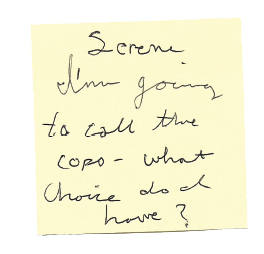 Serene
I'm going
to call the
cops - what
choice do I
have?